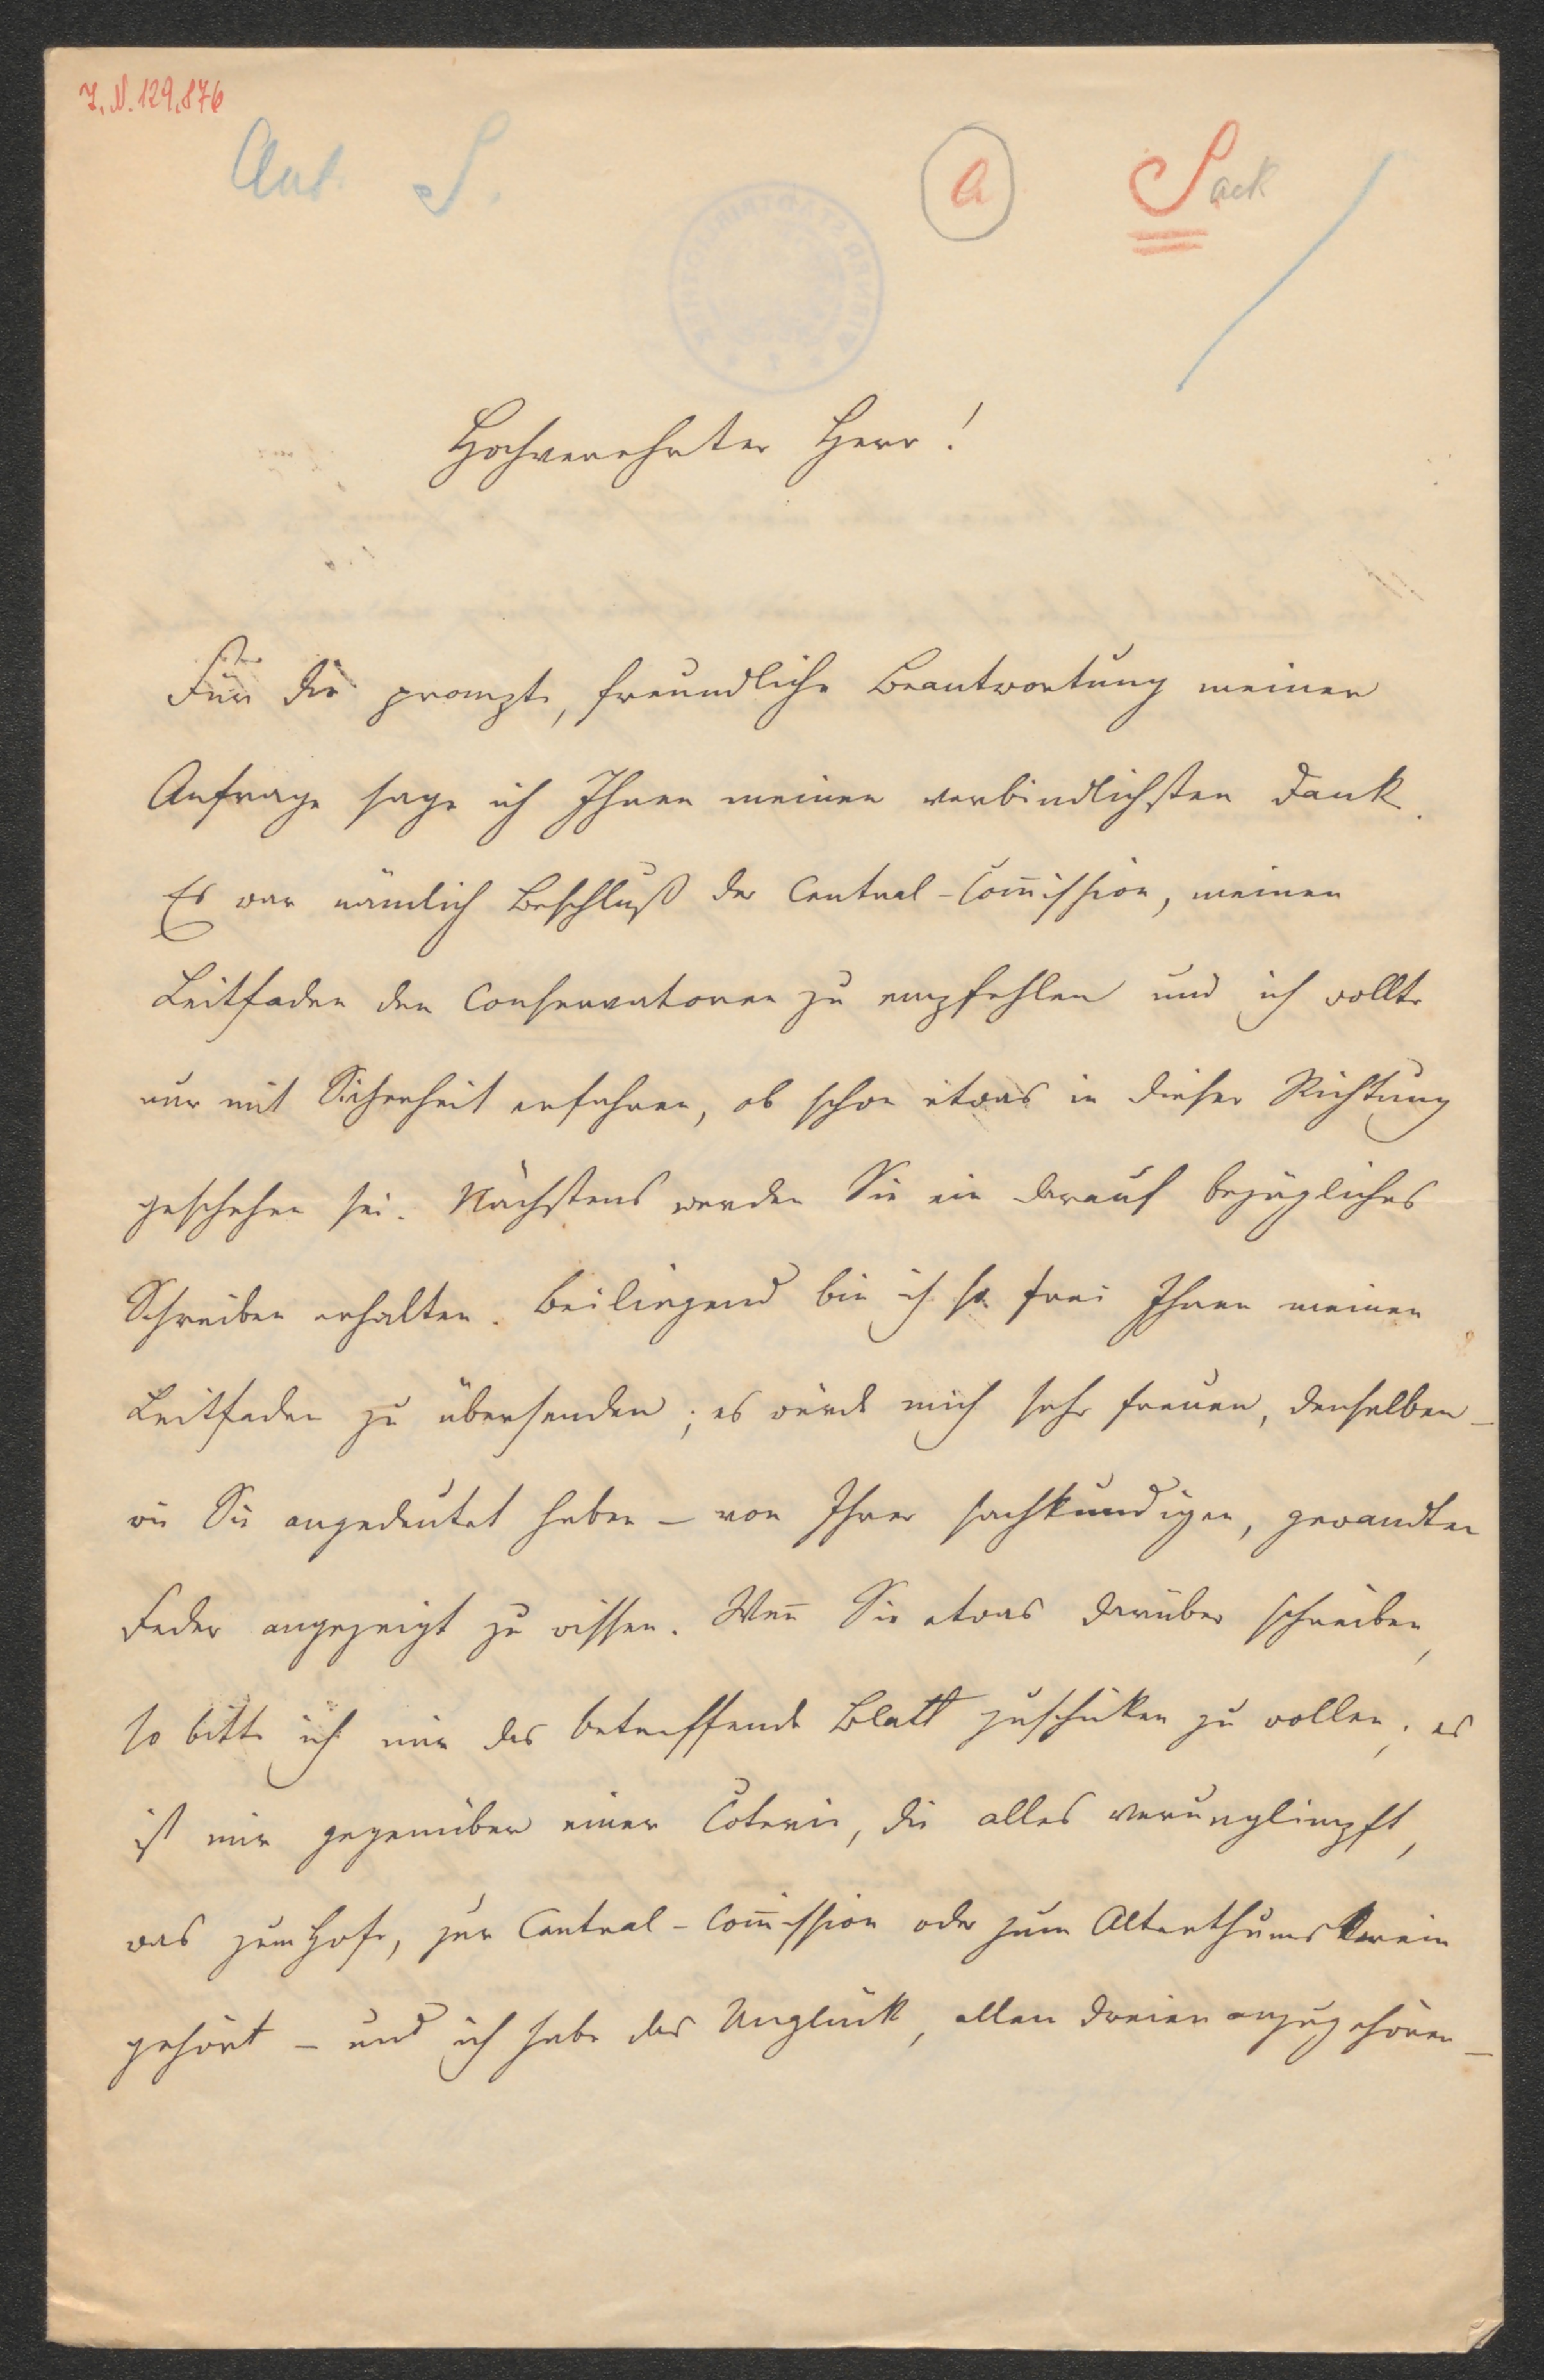 I.N. 129.876
Ant. S.
a
Sack
Hochverehrter Herr!
Für die prompte, freundliche Beantwortung meiner
Anfrage sage ich Ihnen meinen verbindlichsten Dank.
Es war nämlich Beschluß der Central-Com̄ission, meinen
Leitfaden den Conservatoren zu empfehlen und ich wollte
nur mit Sicherheit erfahren, ob schon etwas in dieser Richtung
geschehen sei. Nächstens werden Sie ein darauf bezügliches
Schreiben erhalten. Beiliegend bin ich so frei Ihnen meinen
Leitfaden zu übersenden; es würde mich sehr freuen, denselben –
wie Sie angedeutet haben – von Ihrer sachkundigen, gewandten
Feder angezeigt zu wissen. Wen̄ Sie etwas darüber schreiben,
so bitte ich mir das betreffende Blatt zuschicken zu wollen; es
ist mir gegenüber einer Coterie, die alles verunglimpft,
was zum Hofe, zur Central-Com̄ission oder zum Alterthumsverein
gehört – und ich habe das Unglück, allen dreien anzugehören –